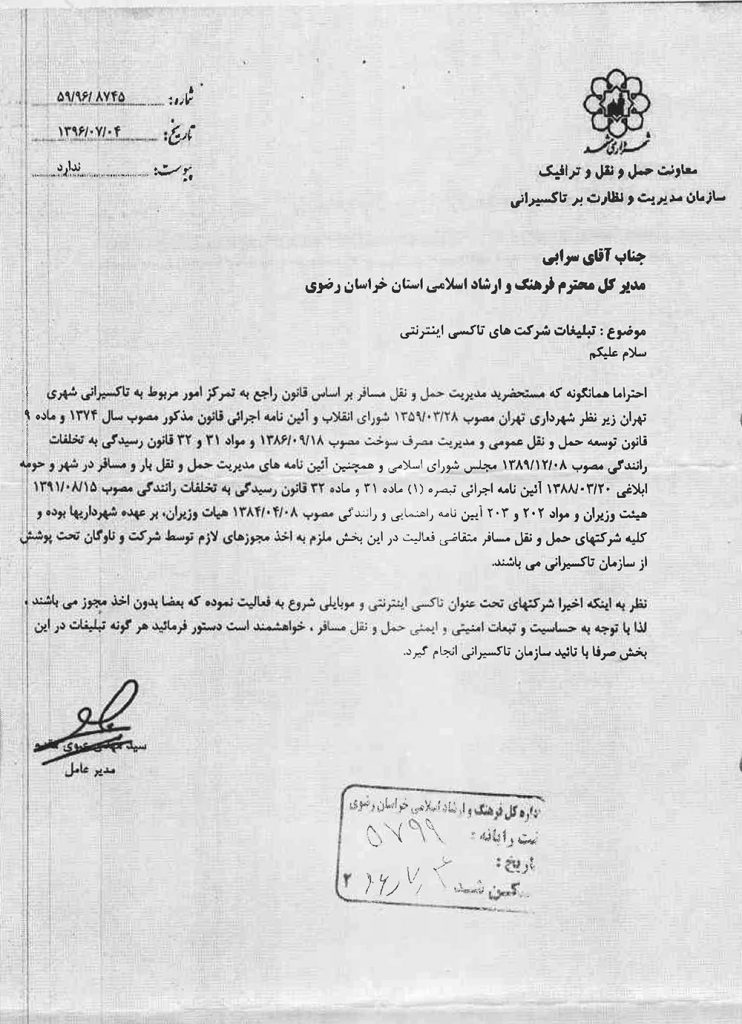 شماره: ۵۹/۹۶/۸۷۴۵
تاریخ: ۱۳۹۶/۰۷/۰۴
پیوست: ندارد
شهرداری مشهد
معاونت حمل و نقل و ترافیک
سازمان مدیریت و نظارت بر تاکسیرانی
جناب آقای سرابی
مدیر کل محترم فرهنگ و ارشاد اسلامی استان خراسان رضوی
موضوع : تبلیغات شرکت های تاکسی اینترنتی
سلام علیکم
احتراما همانگونه که مستحضرید مدیریت حمل و نقل مسافر بر اساس قانون راجع به تمرکز امور مربوط به تاکسیرانی شهری
تهران زیر نظر شهرداری تهران مصوب ۱۳۵۹/۰۳/۲۸ شورای انقلاب و آئین نامه اجرائی قانون مذکور مصوب سال ۱۳۷۴ و ماده ۹
قانون توسعه حمل و نقل عمومی و مدیریت مصرف سوخت مصوب ۱۳۸۶/۰۹/۱۸ و مواد ۳۱ و ۳۲ قانون رسیدگی به تخلفات
رانندگی مصوب ۱۳۸۹/۱۲/۰۸ مجلس شورای اسلامی و همچنین آئین نامه های مدیریت حمل و نقل بار و مسافر در شهر و حومه
ابلاغی ۱۳۸۸/۰۳/۲۰ آئین نامه اجرائی تبصره (۱) ماده ۳۱ و ماده ۳۲ قانون رسیدگی به تخلفات رانندگی مصوب ۱۳۹۱/۰۸/۱۵
هیئت وزیران و مواد ۲۰۲ و ۲۰۳ آیین نامه راهنمایی و رانندگی مصوب ۱۳۸۴/۰۴/۰۸ هیات وزیران، بر عهده شهرداریها بوده و
کلیه شرکتهای حمل و نقل مسافر متقاضی فعالیت در این بخش ملزم به اخذ مجوزهای لازم توسط شرکت و ناوگان تحت پوشش
از سازمان تاکسیرانی می باشند.
نظر به اینکه اخیرا شرکتهای تحت عنوان تاکسی اینترنتی و موبایلی شروع به فعالیت نموده که بعضا بدون اخذ مجوز می باشند ،
لذا با توجه به حساسیت و تبعات امنیتی و ایمنی حمل و نقل مسافر ، خواهشمند است دستور فرمائید هر گونه تبلیغات در این
بخش صرفا با تائید سازمان تاکسیرانی انجام گیرد.
سید مهدی
مدیر عامل
اداره کل فرهنگ و ارشاد اسلامی خراسان رضوی
ثبت رایانه : ۵۷۹۹
تاریخ :
اسکن شد